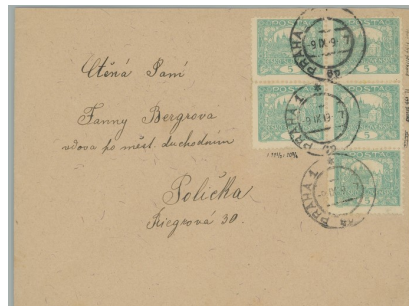 Ctěná Paní
Fanny Bergrova
vdova po měst. duchodním
Polička
Riegrová 30.
POŠTA
5
PRAHA 1
PRAHA 1
PRAHA 1